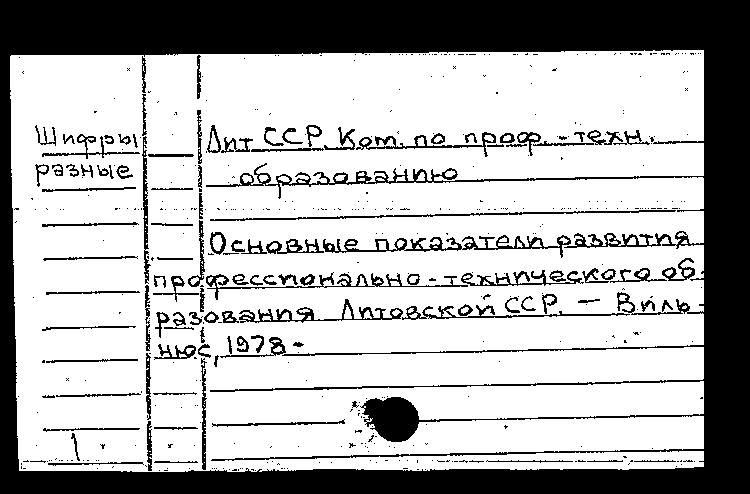 Шифры
разные
Лит ССР. Ком. по проф.-техн.
образованию
Основные показатели развития
профессионально-технического об-
разования Литовской ССР. — Виль-
нюс, 1978-
1